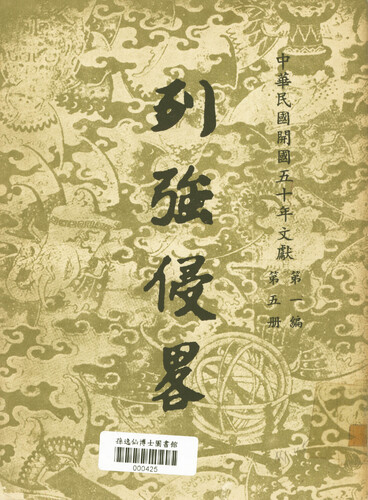 中華民國開國五十年文獻
第一編
第五册
列強侵畧
孫逸仙博士圖書館
000425